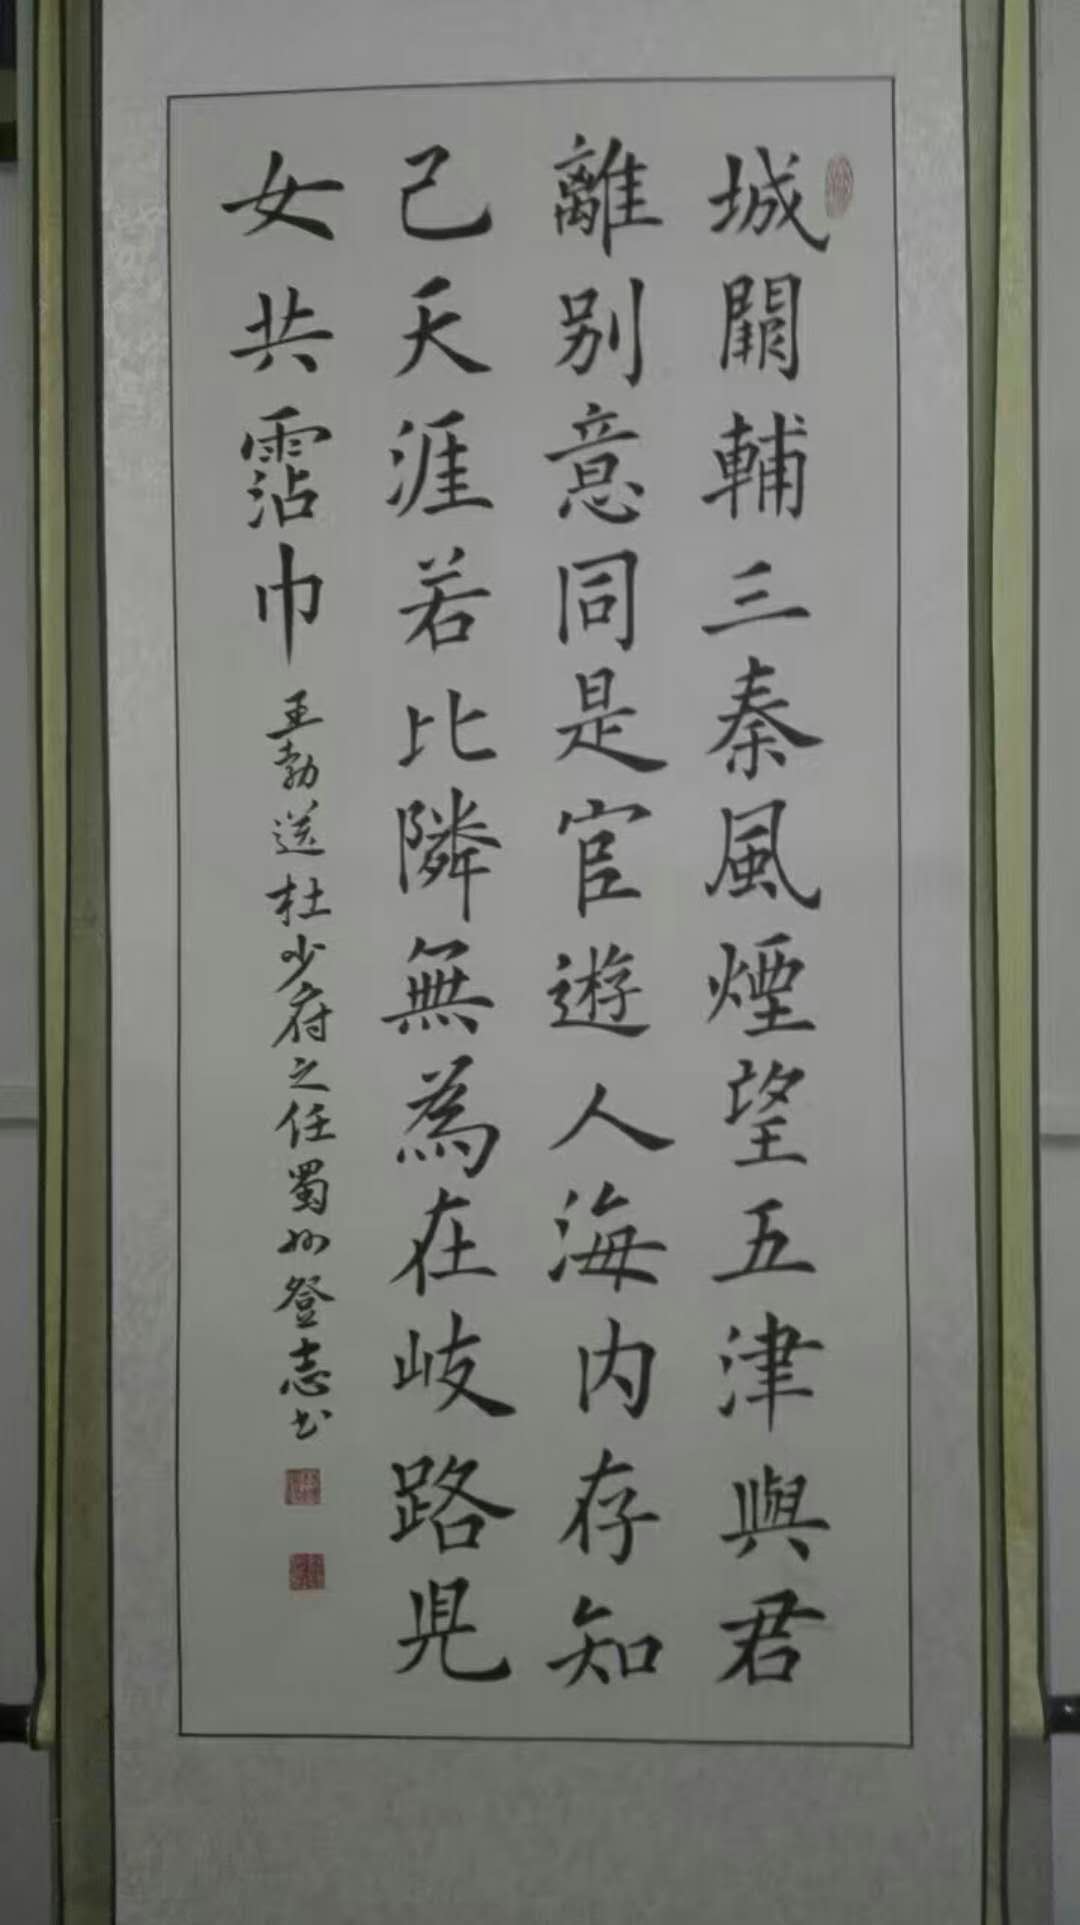 城闕輔三秦風煙望五津與君
離别意同是宦遊人海内存知
己天涯若比隣無為在岐路児
女共霑巾
王勃送杜少府之任蜀州登志书